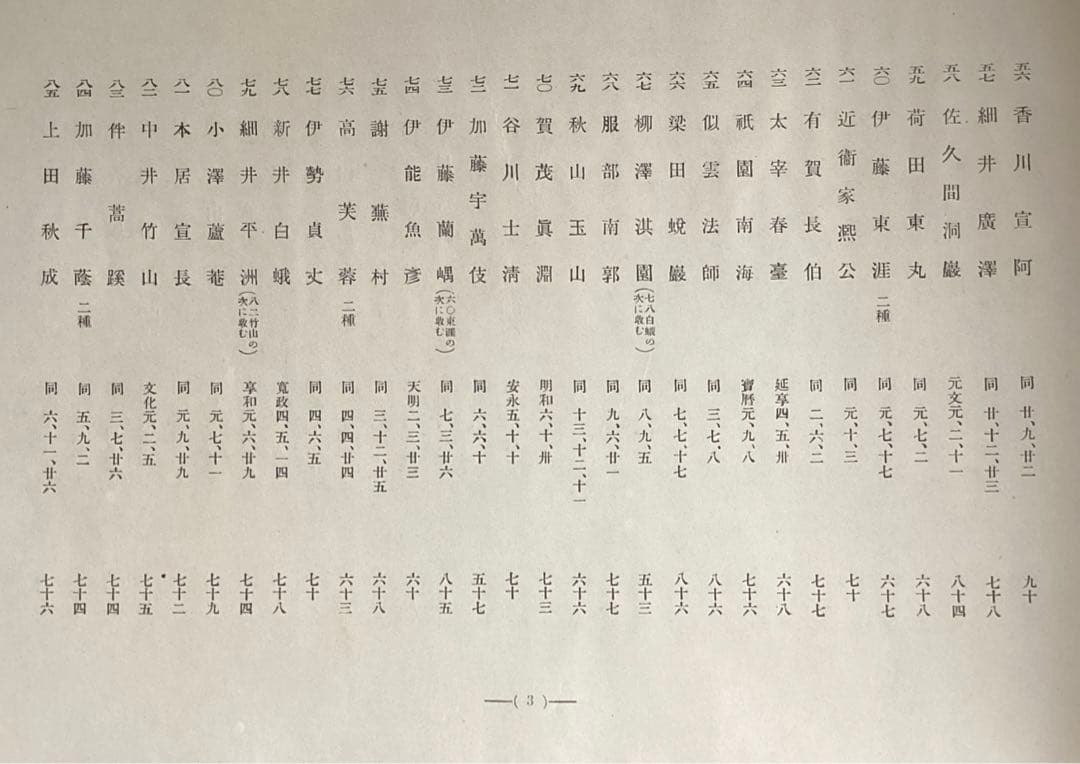 五六 香川宣阿 同 廿、九、廿二 九十
五七 細井廣澤 同 廿、十二、廿三 七十八
五八 佐久間洞巖 元文元、二、十一 八十四
五九 荷田東丸 同 元、七、二 六十八
六〇 伊藤東涯 二種 同 元、七、十七 六十七
六一 近衞家凞公 同 元、十、三 七十
六二 有賀長伯 同 二、六、二 七十七
六三 太宰春臺 延享四、五、卅 六十八
六四 祇園南海 寶曆元、九、八 七十六
六五 似雲法師 同 三、七、八 八十六
六六 梁田蛻巖 同 七、七、十七 八十六
六七 柳澤淇園(七八白蛾の次に收む) 同 八、九、五 五十三
六八 服部南郭 同 九、六、廿一 七十七
六九 秋山玉山 同 十三、十二、十一 六十六
七〇 賀茂眞淵 明和六、十、卅 七十三
七一 谷川士淸 安永五、十、十 七十
七二 加藤宇萬伎 同 六、六、十 五十七
七三 伊藤蘭嵎(六〇東涯の次に收む) 同 七、三、廿六 八十五
七四 伊能魚彥 天明二、三、廿三 六十
七五 謝蕪村 同 三、十二、廿五 六十八
七六 高芙蓉 二種 同 四、四、廿四 六十三
七七 伊勢貞丈 同 四、六、五 七十
七八 新井白蛾 寬政四、五、一四 七十八
七九 細井平洲(八二竹山の次に收む) 享和元、六、廿九 七十四
八〇 小澤蘆菴 同 元、七、十一 七十九
八一 本居宣長 同 元、九、廿九 七十二
八二 中井竹山 文化元、二、五 七十五
八三 伴蒿蹊 同 三、七、廿六 七十四
八四 加藤千蔭 二種 同 五、九、二 七十四
八五 上田秋成 同 六、十一、廿六 七十六
( 3 )